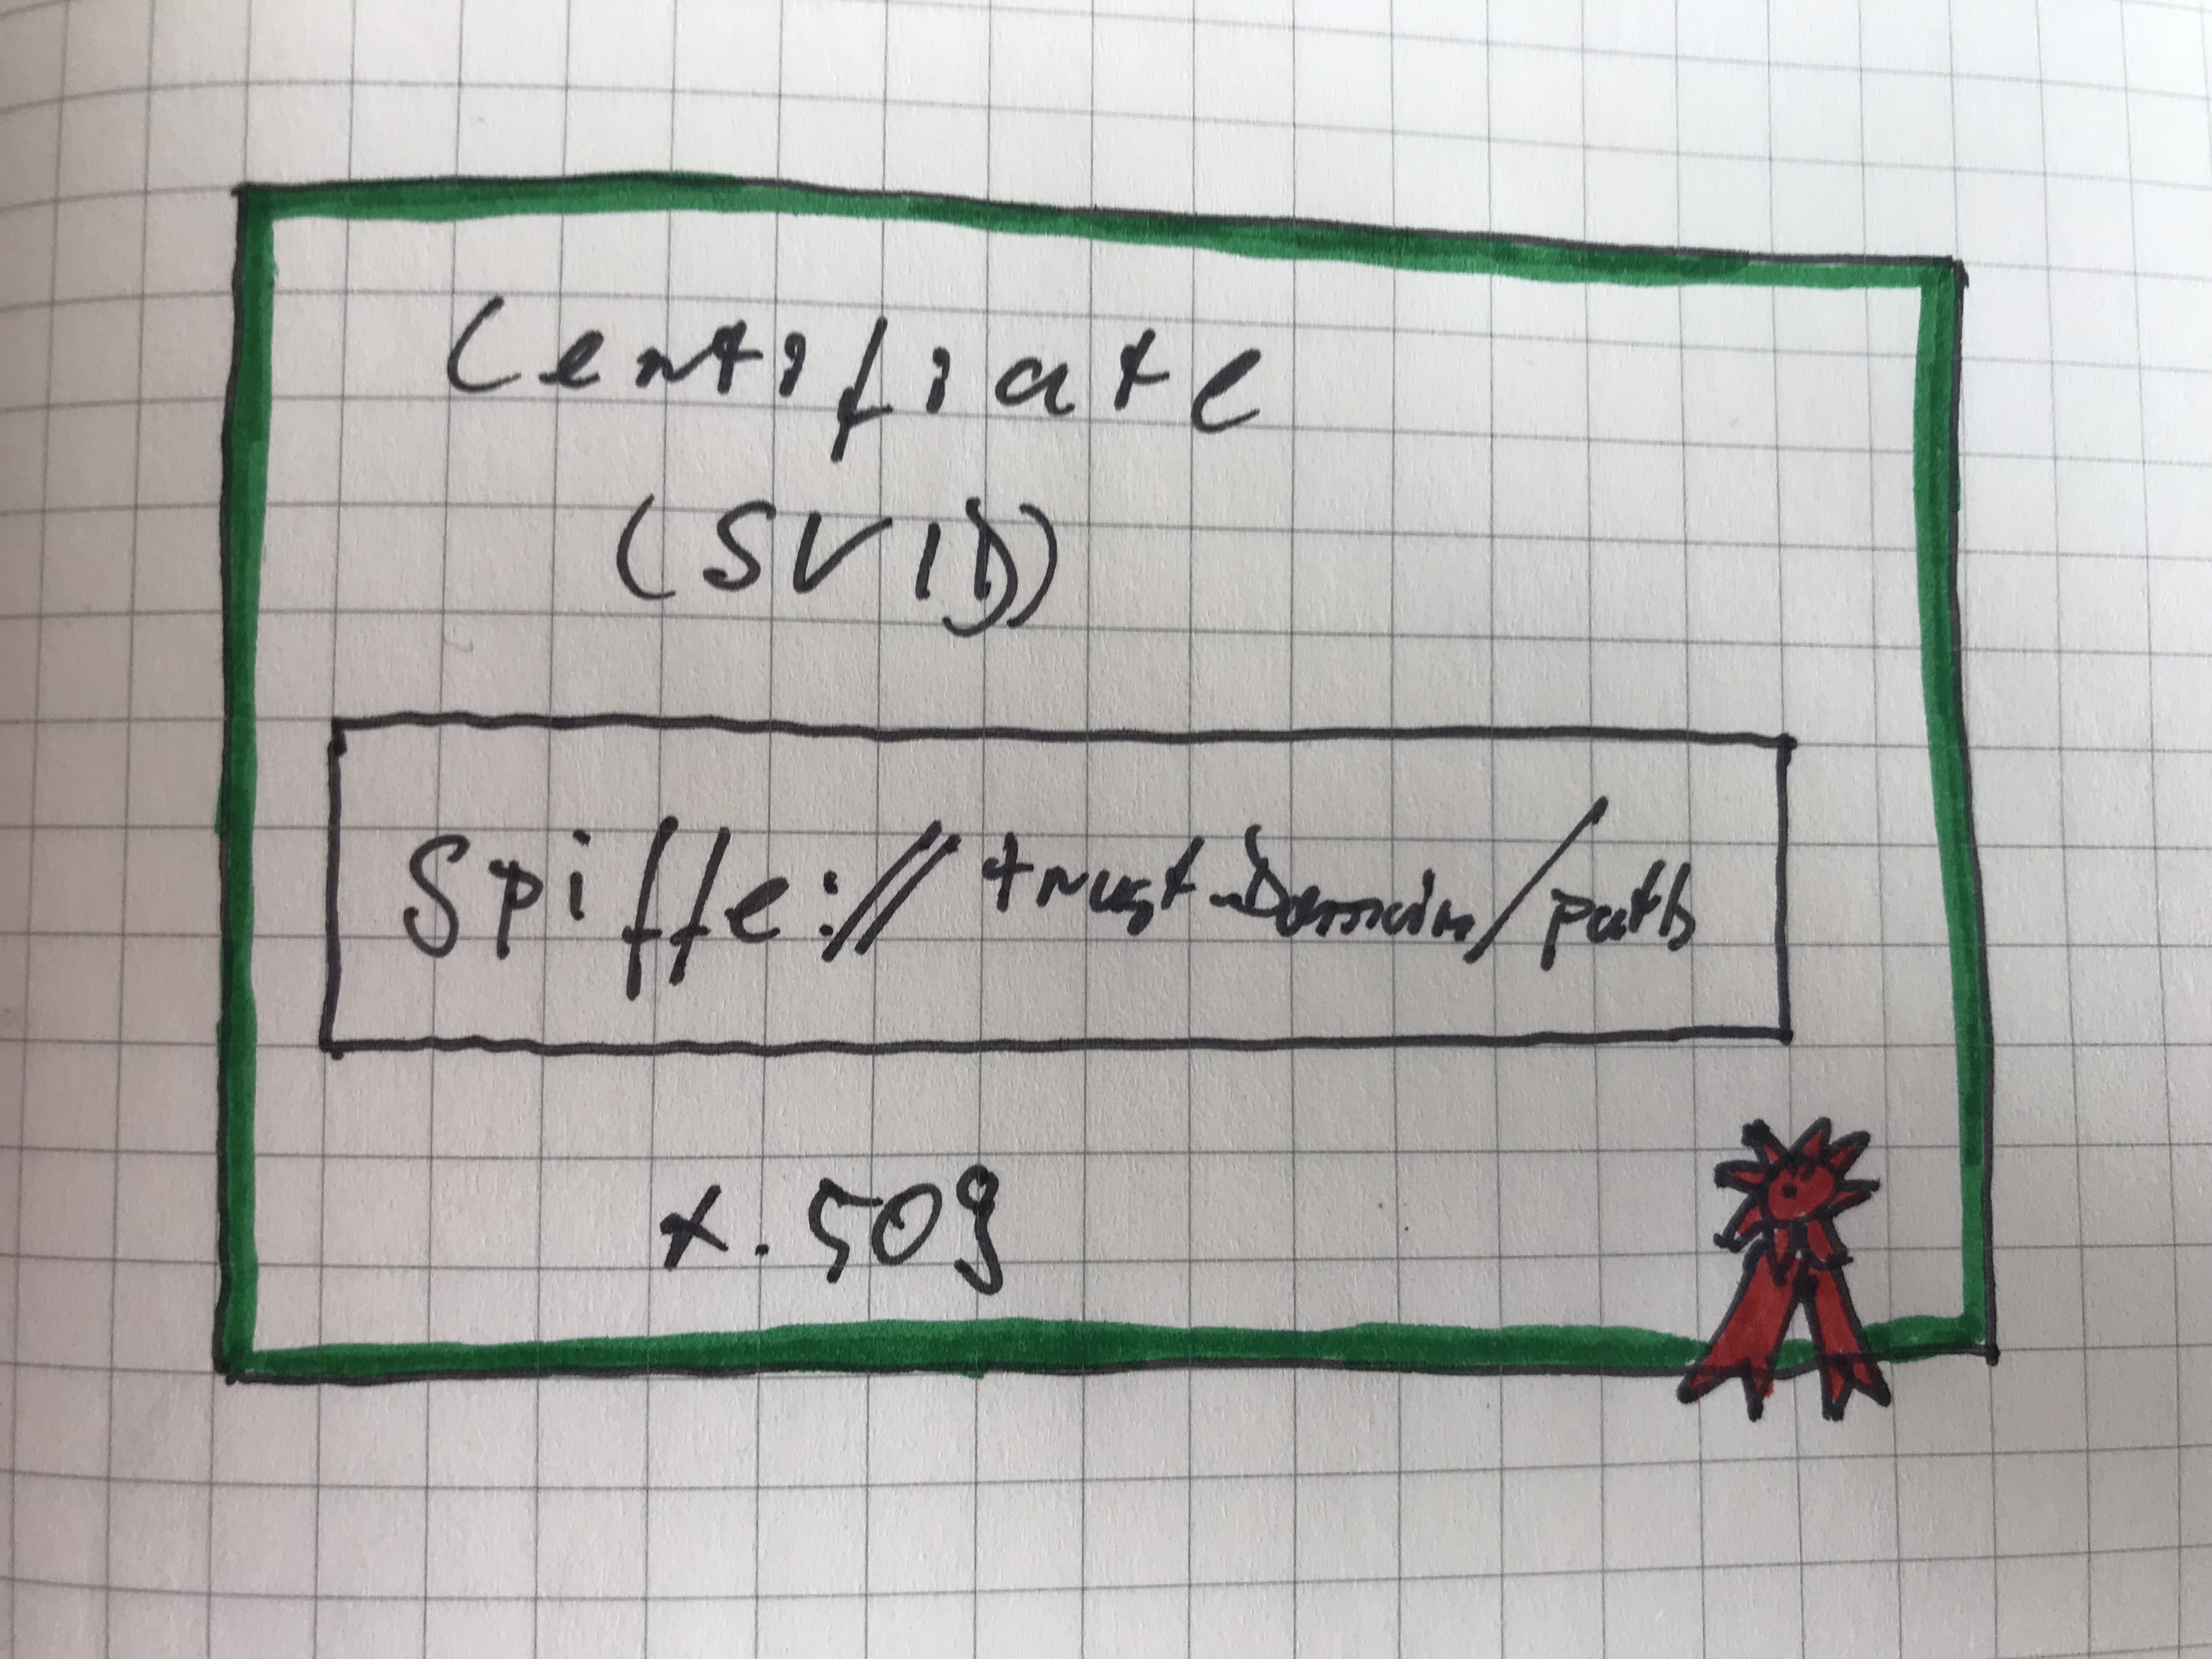 Certifiate
(SVID)
Spiffe://trust-Domain/path
x.509